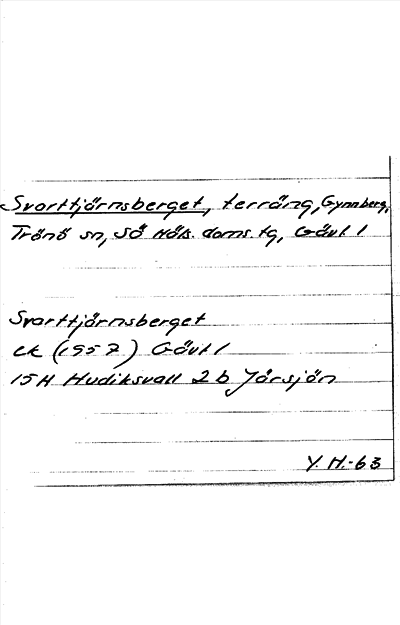 Svarttjärnsberget, terräng, Gynnberg,
Trönö sn, Sö Häls. doms. tg, Gävl l
Svarttjärnsberget
ek (1957) Gävl l
15H Hudiksvall 2 b Jörsjön
Y. H.-63